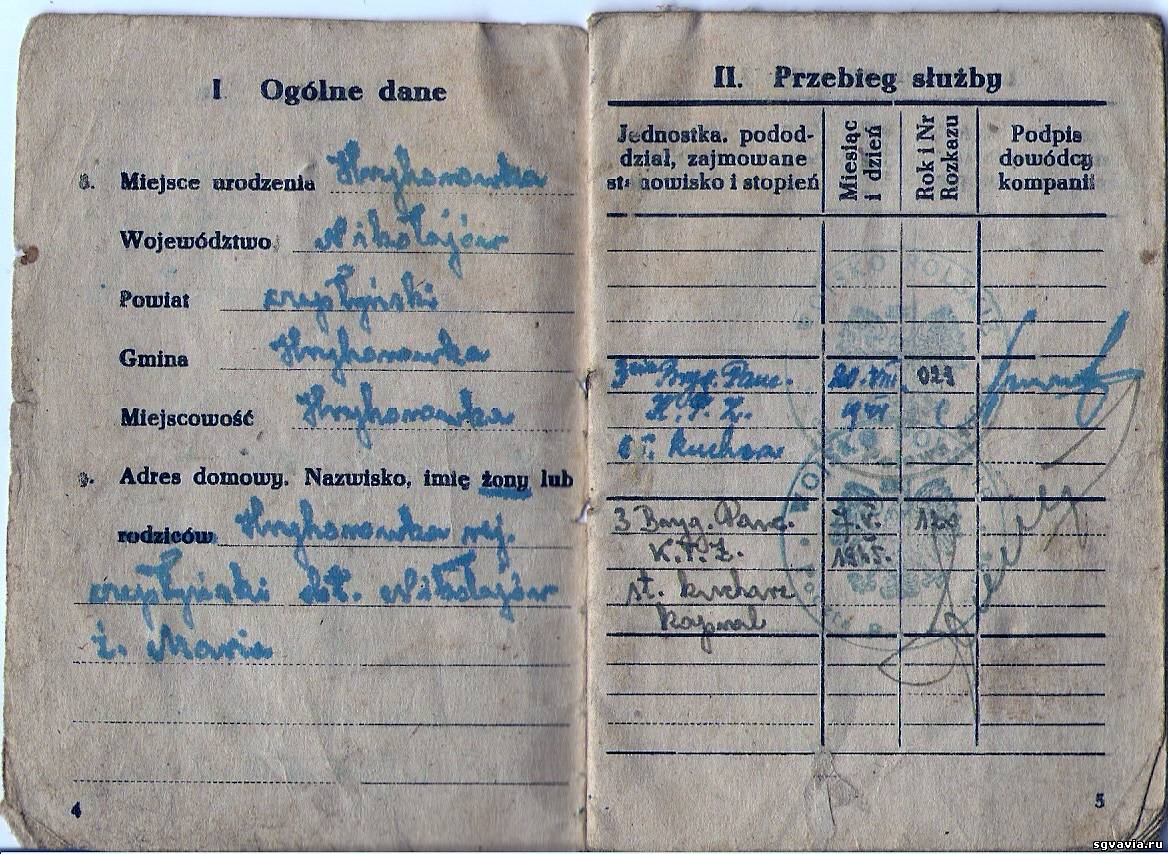 I Ogólne dane
8. Miejsce urodzenia Hryhorowka
Województwo Nikołajów
Powiat
Gmina Hryhorowka
Miejscowość Hryhorowka
9. Adres domowy. Nazwisko, imię żony lub
rodziców Hryhorowka rej.
Nikołajów
ż. Maria
4
II. Przebieg służby
Jednostka. podod-
dział, zajmowane
stanowisko i stopień
Miesiąc
i dzień
Rok i Nr
Rozkazu
Podpis
dowódcy
kompanii
Bryg. Panc. 20.VIII 029
K.P.Z.
st. kucharz
3 Bryg. Panc.
K.P.Z. 1945.
st. kucharz
kapral
5
sgvavia.ru